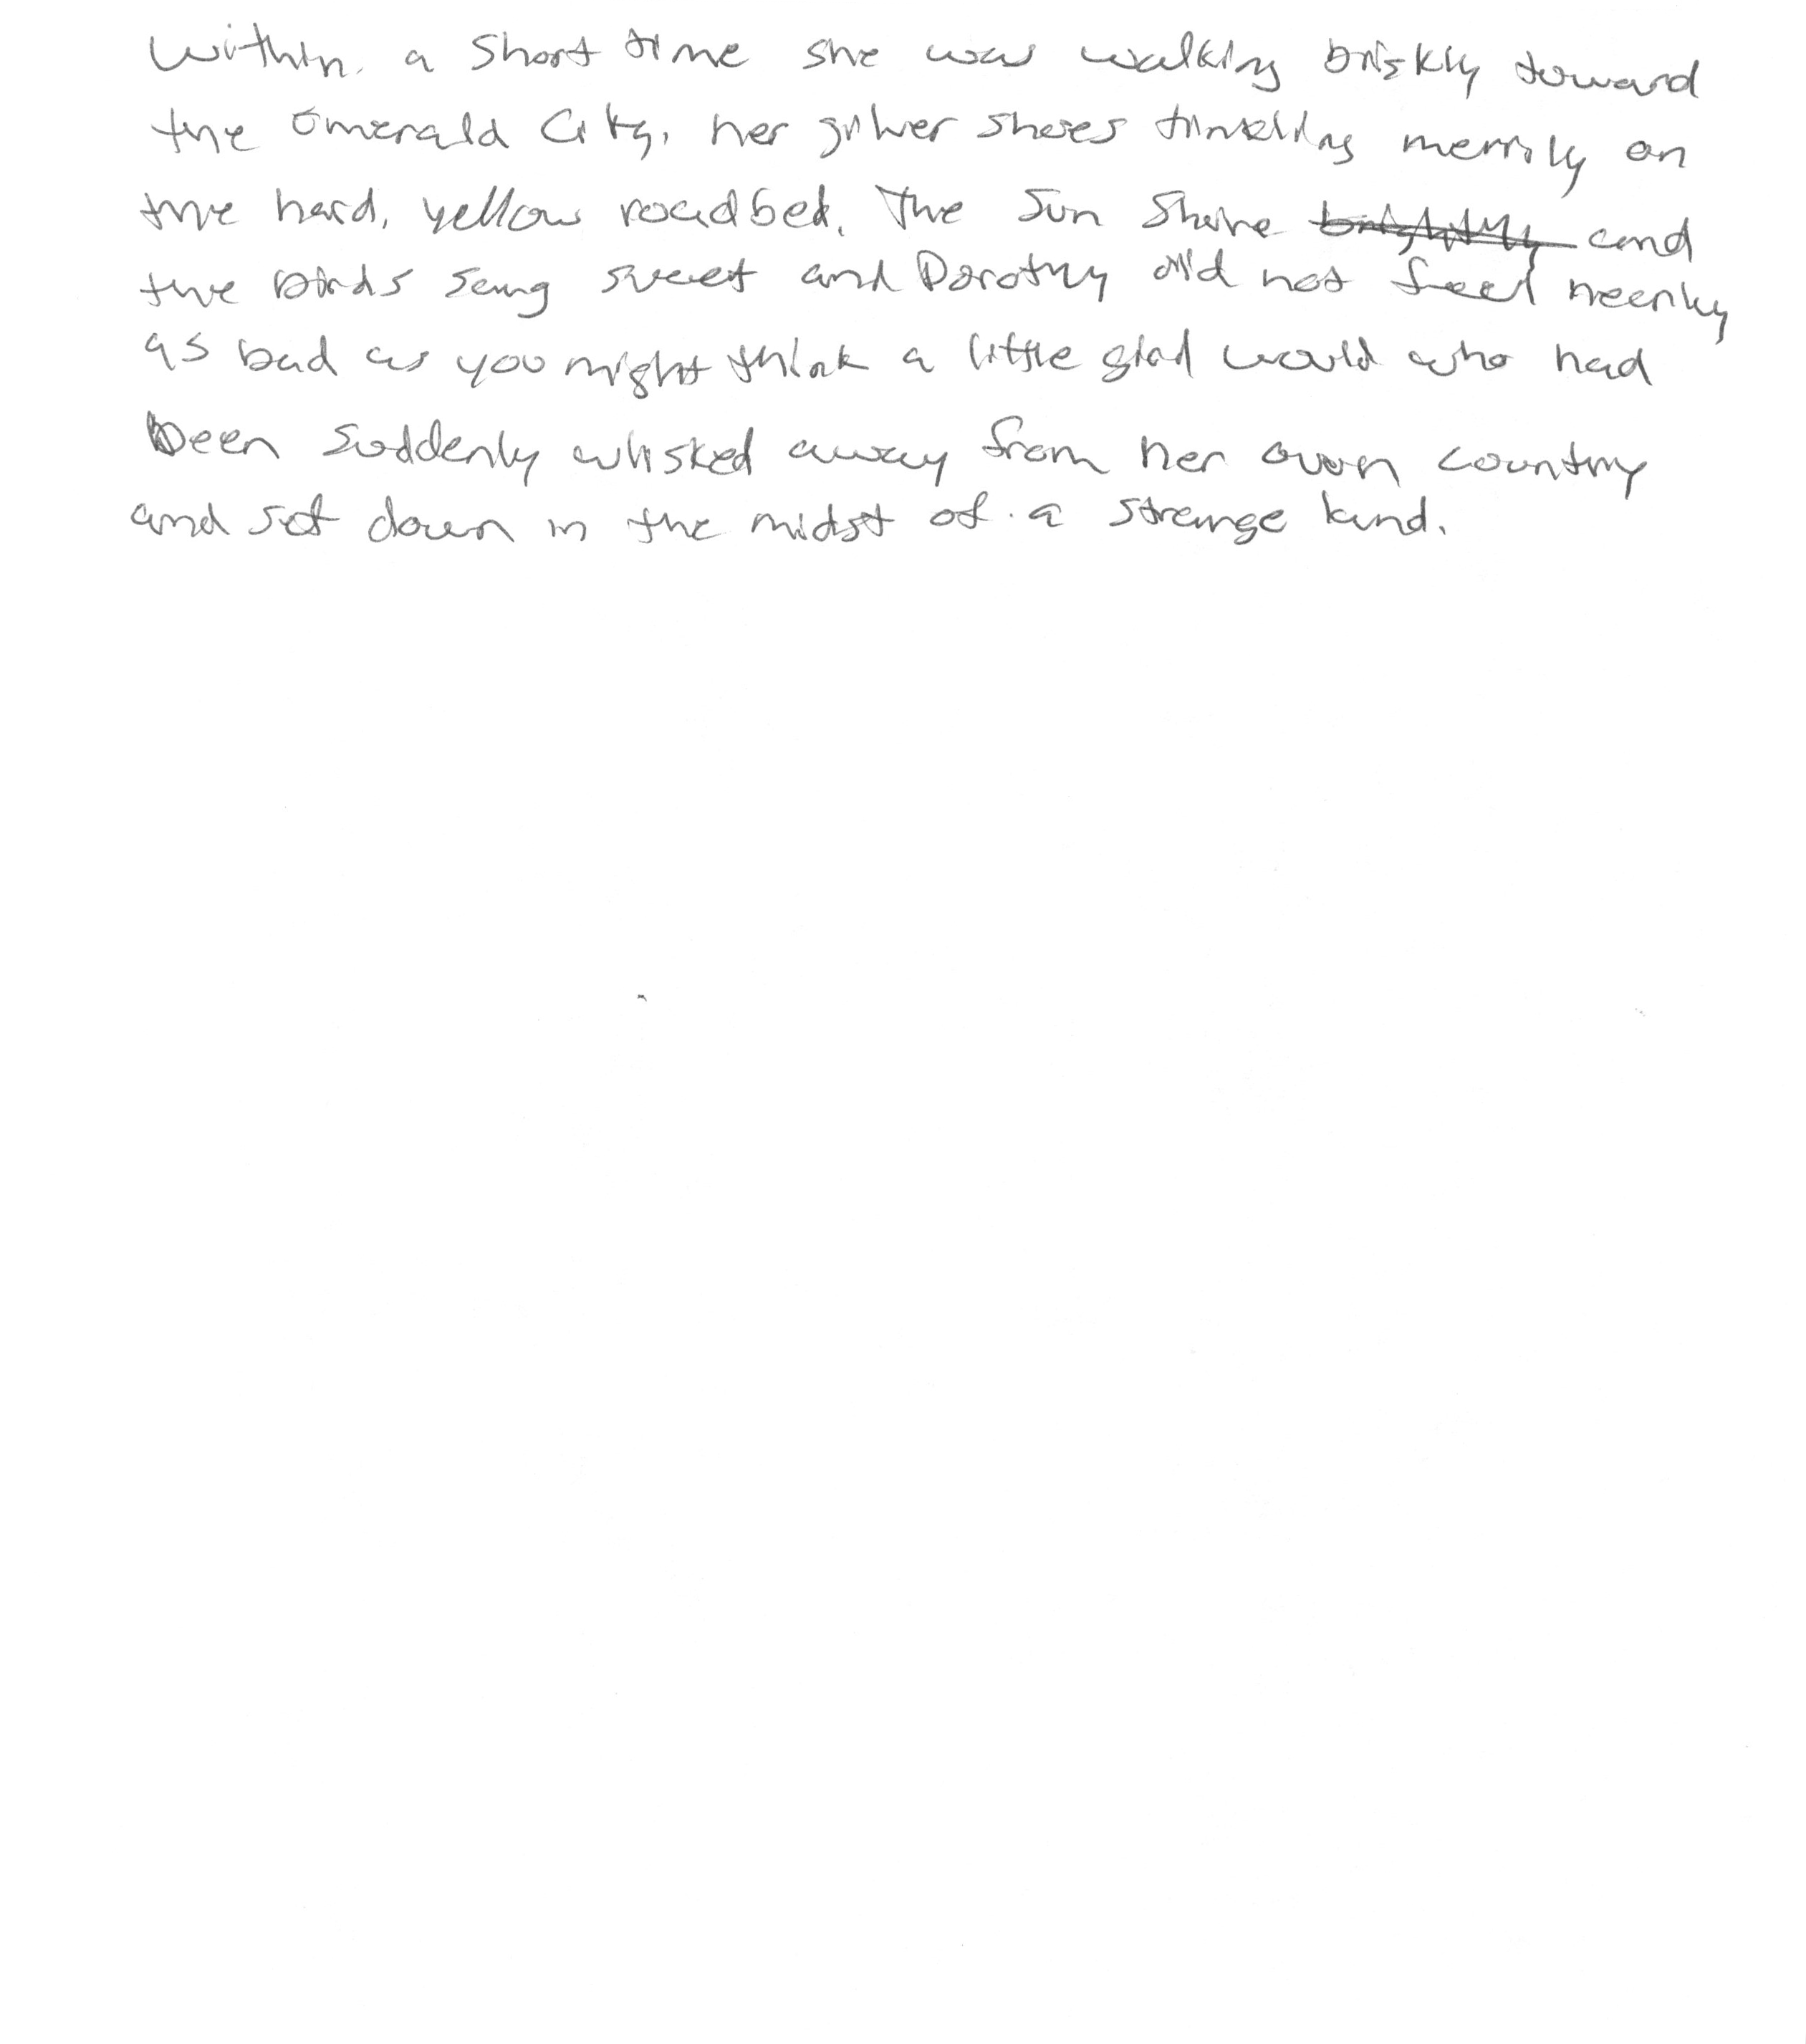 Within a short time she was walking briskly toward
the Emerald City, her silver shoes tinkling merrily on
the hard, yellow roadbed. The sun shine brightly and
the birds sang sweet and Dorothy did not feel nearly
as bad as you might think a little glad would who had
been suddenly whisked away from her own country
and set down in the midst of a strange land.